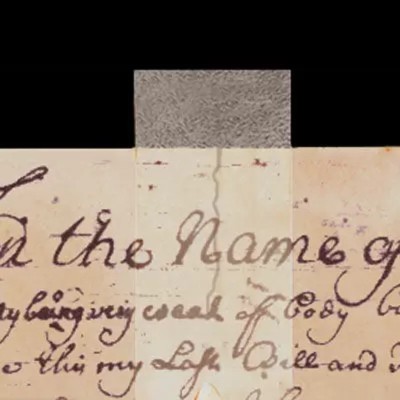 the Name of
being very weak off Body
thy my Last Will and